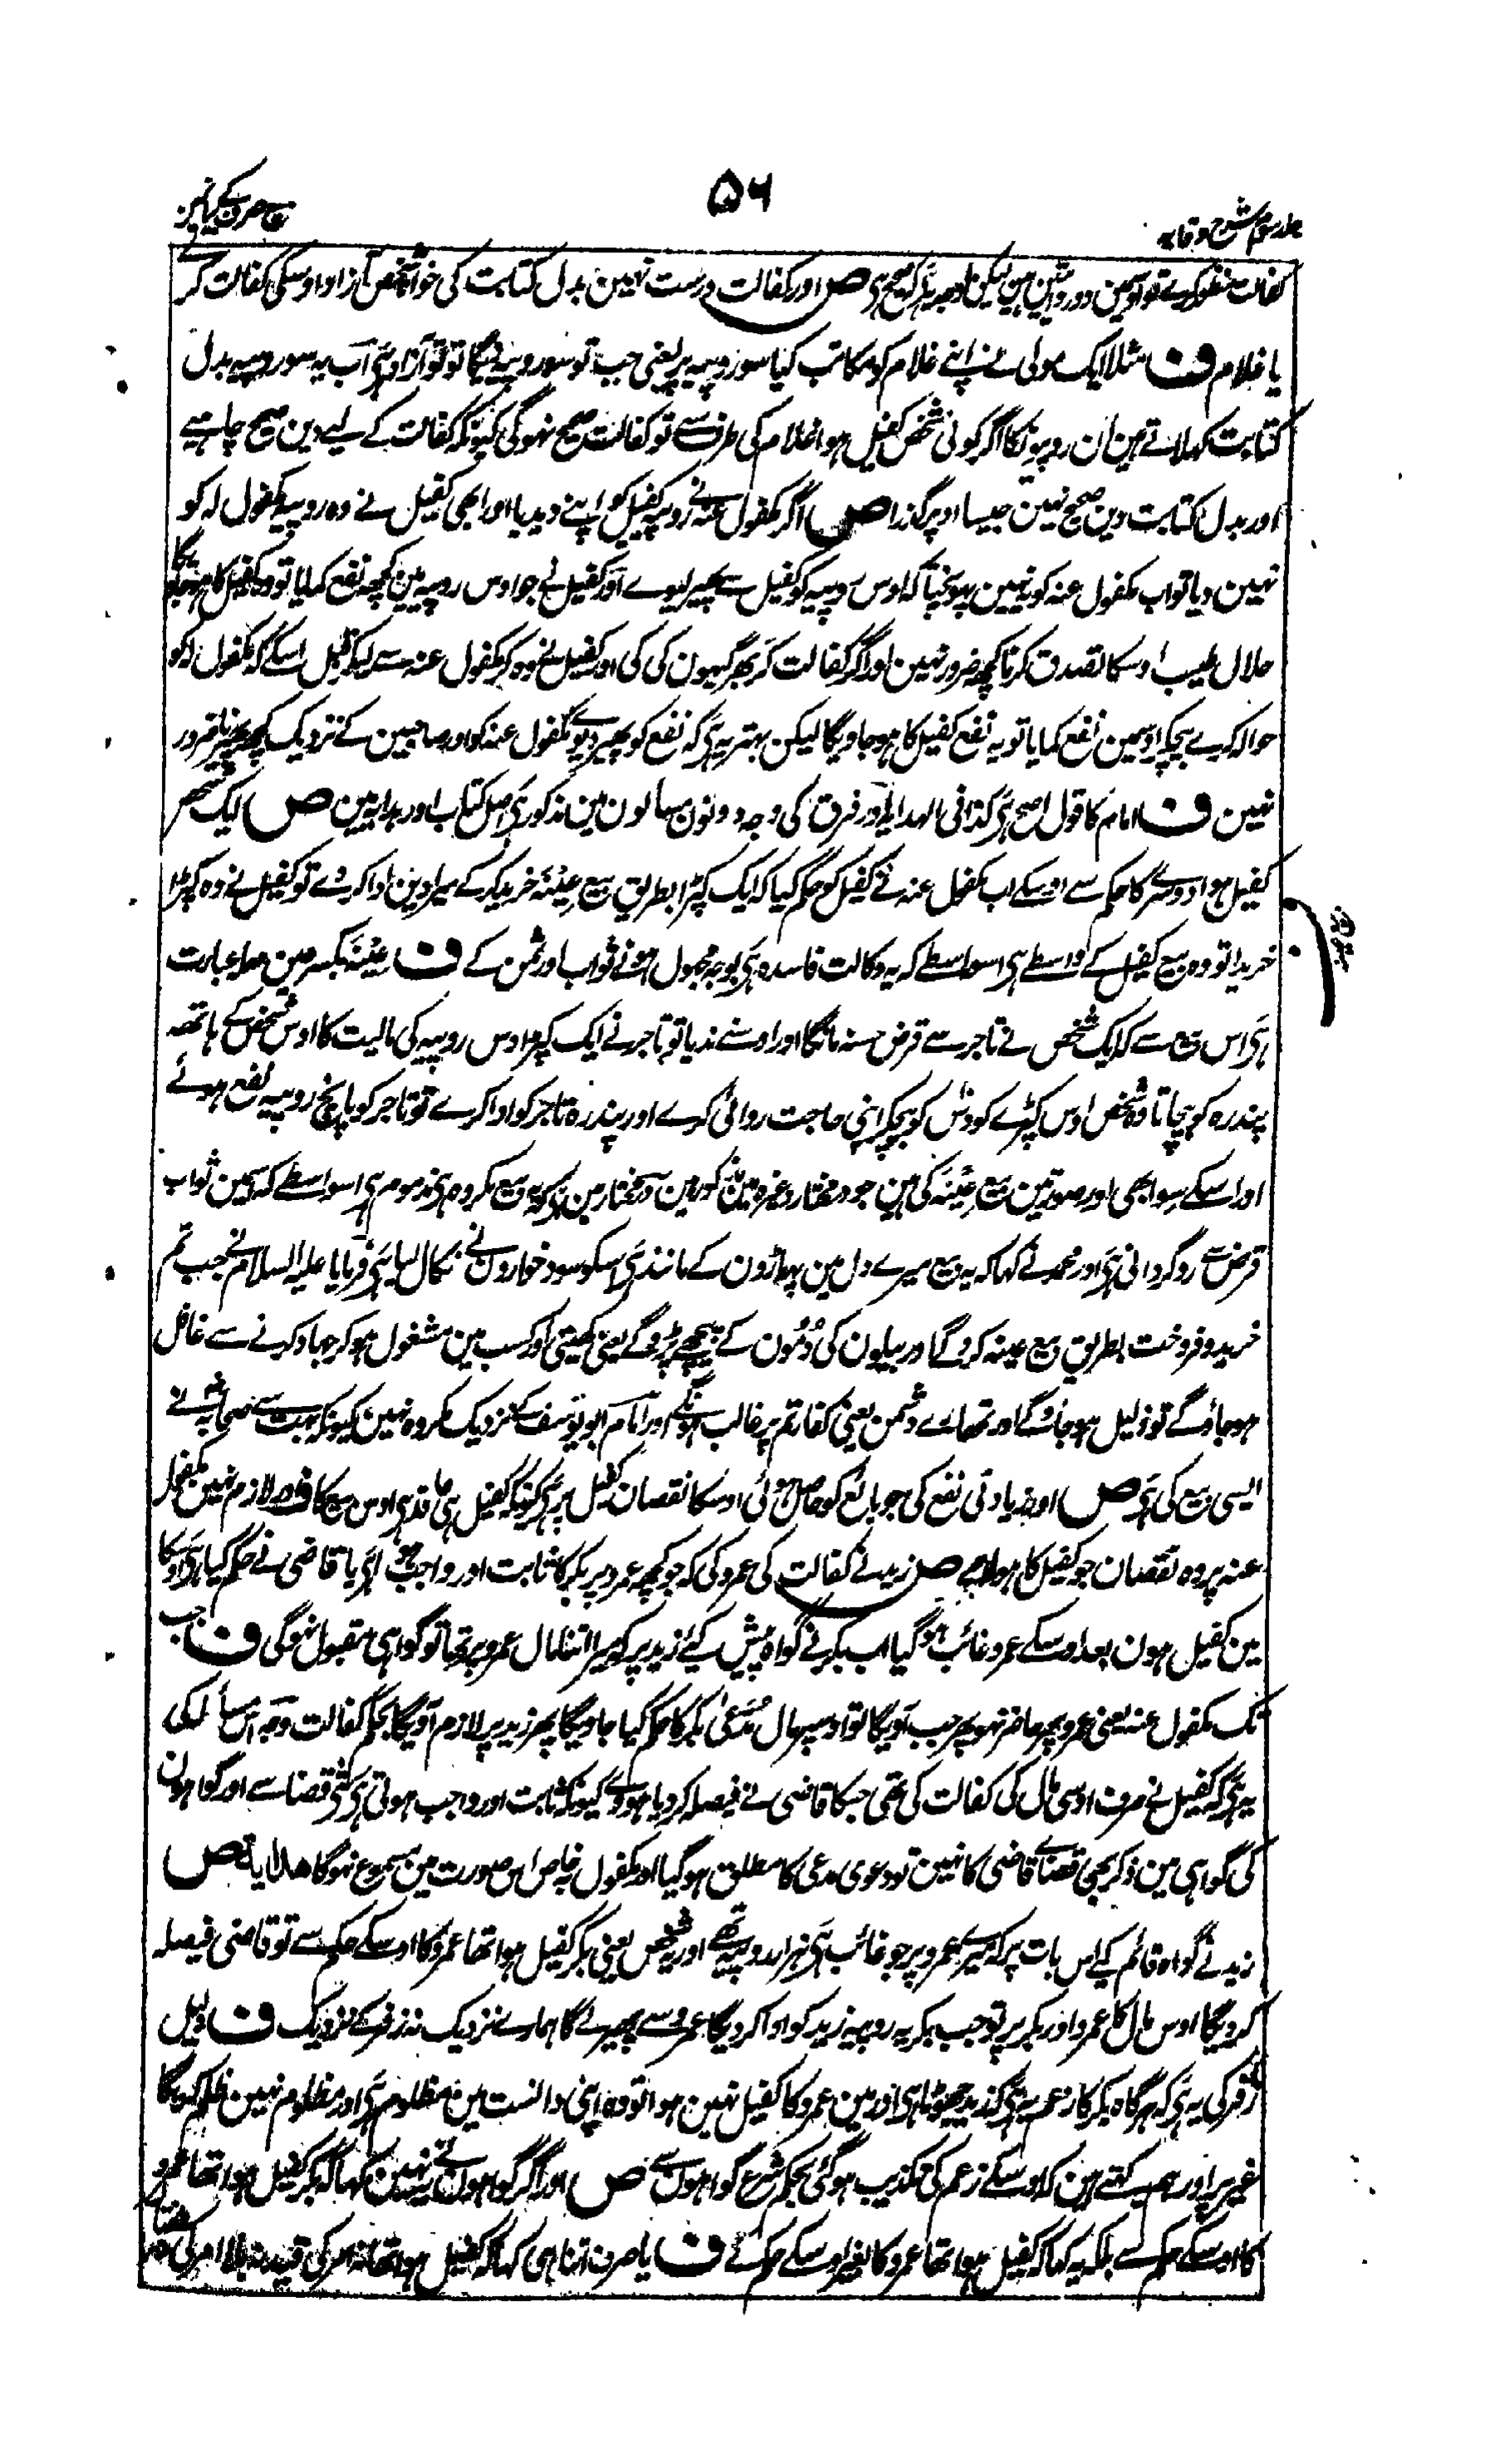 ۵۶
جلد سوم شرح وقایہ
کفالت منظور کرے تو اوسمین دو روایتین ہین لیکن اوجہ یہ ہی کہ صحیح ہی ص اور کفالت درست نہین بدل کتابت کی خواہ شخص آزاد اوسکی کفالت کرے
یا غلام ف مثلا ایک مولی نے اپنے غلام کو مکاتب کیا سو روپیہ پر یعنی جب تو سو روپیہ دیگا تو تو آزاد ہی اب یہ سو روپیہ بدل
کتابت کہلاتے ہین ان روپیونکا اگر کوئی شخص کفیل ہوا غلام کی طرف سے تو کفالت صحیح نہوگی کیونکہ کفالت کے لیے دین صحیح چاہیے
اور بدل کتابت دین صحیح نہین جیسا اوپر گذرا ص اگر مکفول عنہ نے روپیہ کفیل کو اپنے دیدیا اور ابھی کفیل نے وہ روپیہ مکفول لہ کو
نہین دیا تو اب مکفول عنہ کو نہین پہونچتا کہ اوس روپیہ کو کفیل سے پھیر لیوے اور کفیل نے جو اوس روپیہ مین کچھ نفع کمایا تو وہ کفیل کا ہوجاویگا
حلال طیب اوسکا تصدق کرنا کچھ ضرور نہین اور اگر کفالت کر بھر گیہون کی کی اور کفیل نے وہ کر مکفول عنہ سے لیکر قبل اسکے کہ مکفول لہ کو
حوالہ کرے بیچکر اوسمین نفع کمایا تو یہ نفع کفیل کا ہوجاویگا لیکن بہتر یہ ہی کہ نفع کو پھیر دیوے مکفول عنہ کو اور صاحبین کے نزدیک کچھ پھیرنا ضرور
نہین ف امام کا قول اصح ہی کذا فی الہدایہ اور فرق کی وجہ دونون مسالون مین مذکور ہی اصل کتاب اور ہدایہ مین ص ایک شخص
کفیل ہوا دوسرے کا حکم سے اوسکے اب مکفول عنہ نے کفیل کو حکم کیا کہ ایک کپڑا بطریق بیع عینہ خرید کرکے میرا دین ادا کر دے تو کفیل نے وہ کپڑا
خریدا تو وہ بیع کفیل کے واسطے ہی اسواسطے کہ یہ وکالت فاسدہ ہی بوجہ مجہول ہونے ثواب اور ثمن کے ف عینہ بکسر عین مہملہ عبارت
ہی اس بیع سے کہ ایک شخص نے تاجر سے قرض حسنہ مانگا اور اوسنے ندیا تو تاجر نے ایک کپڑا دس روپیہ کی مالیت کا اوس شخص کے ہاتھ
پندرہ کو بیچا تا وہ شخص اوس کپڑے کو دس کو بیچکر اپنی حاجت روائی کرے اور پندرہ تاجر کو ادا کرے تو تاجر کو پانچ روپیہ نفع ہوئے
اور اسکے سوا بھی اور صورتین بیع عینہ کی ہین جو درمختار وغیرہ مین مذکور ہین درمختار مین ہی کہ یہ بیع مکروہ ہی مذموم ہی اسواسطے کہ اسمین ثواب
قرض سے روگردانی ہی اور محمد نے کہا کہ یہ بیع میرے دل مین پہاڑون کے مانند ہی اسکو سود خوارون نے نکال لیا ہی فرمایا علیہ السلام نے جب تم
خرید و فروخت بطریق بیع عینہ کروگے اور بیلون کی دُمون کے پیچھے پڑوگے یعنی کھیتی اور کسب مین مشغول ہوکر جہاد کرنے سے غافل
ہوجاؤگے تو ذلیل ہوجاؤگے اور تمھارے دشمن یعنی کفار تم پر غالب ہونگے اور امام ابو یوسف کے نزدیک مکروہ نہین کیونکہ بہت سے صحابہ نے
ایسی بیع کی ہی ص اور زیادتی نفع کی جو بائع کو حاصل ہوئی اوسکا نقصان کفیل پر ہی کیونکہ کفیل ہی عاقد ہی اوس بیع کا ف اور لازم نہین مکفول
عنہ پر وہ نقصان جو کفیل کا ہوا ص زید نے کفالت کی عمرو کی کہ جو کچھ عمرو پر بکر کا ثابت اور واجب ہوا ہی یا قاضی نے حکم کیا ہی اوسکا
مین کفیل ہون بعد اوسکے عمرو غائب ہوگیا اب بکر نے گواہ پیش کیے زید پر کہ میرا اتنا مال عمرو پر تھا تو گواہی مقبول نہوگی ف جب
تک مکفول عنہ یعنی عمرو پھر حاضر نہو پھر جب آویگا تو اوسپر مال مدعیٰ بکر کا حکم کیا جاویگا پھر زید پر لازم آویگا بحکم کفالت وجہ اس مسألہ کی
یہ ہی کہ کفیل نے صرف اوسی مال کی کفالت کی تھی جسکا قاضی نے فیصلہ کردیا ہووے کیونکہ ثابت اور واجب ہوتی ہی شی قضا سے اور گواہون
کی گواہی مین ذکر بھی قضاے قاضی کا نہین تو دعوی مدعی کا مطلق ہوگیا اور مکفول بہ خاص اس صورت مین مسموع نہوگا ھدایہ ص
زید نے گواہ قائم کیے اس بات پر کہ میرے عمرو پر جو غائب ہی ہزار روپیہ تھے اور یہ شخص یعنی بکر کفیل ہوا تھا عمرو کا اوسکے حکم سے تو قاضی فیصلہ
کردیگا اوس مال کا عمرو اور بکر پر تو جب بکر یہ روپیہ زید کو ادا کردیگا عمرو سے پھیر لےگا ہمارے نزدیک نہ زفر کے نزدیک ف دلیل
زفر کی یہ ہی کہ ہرگاہ بکر کا زعم یہ ہی کہ زید جھوٹا ہی اور مین عمرو کا کفیل نہین ہوا تو وہ اپنی دانست مین مظلوم ہی اور مظلوم نہین ظلم کریگا
غیر پر اور ہم کہتے ہین کہ اوسکے زعم کی تکذیب ہوگئی بحکم شرع گواہون سے ص اور اگر گواہون نے یہ نہین کہا کہ بکر کفیل ہوا تھا عمرو
کا اوسکے حکم سے بلکہ یہ کہا کہ کفیل ہوا تھا عمرو کا بغیر اوسکے حکم کے ف یا صرف اتنا ہی کہا کہ کفیل ہوا تھا نہ امر کی قید نہ بلا امر کی